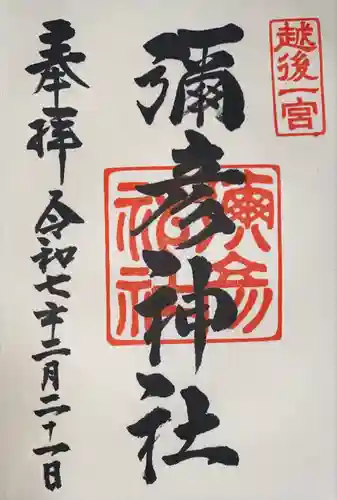 越後一宮
彌彦神社
彌彦神社
奉拝
令和七年十二月二十一日